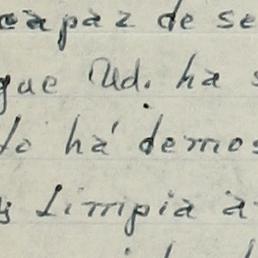 capaz de se
que Ud. ha s
to há demos
limpia a